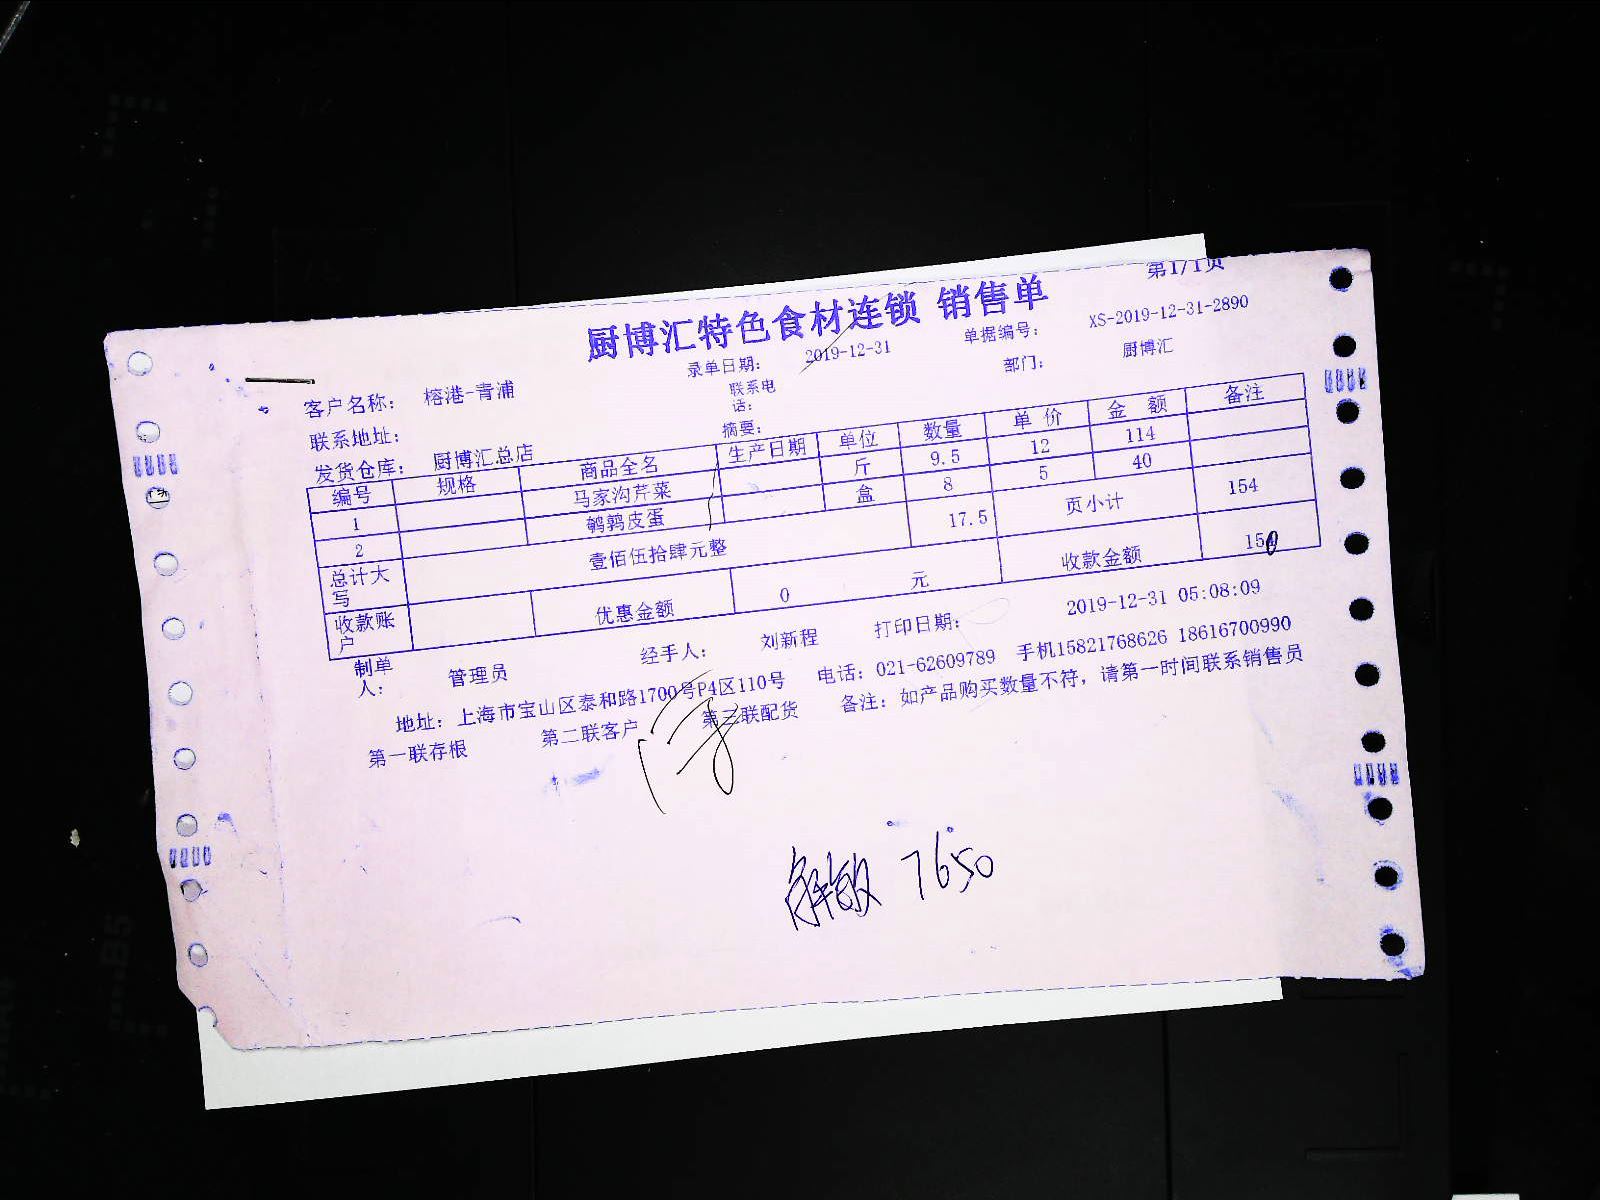 第1/1页
厨博汇特色食材连锁 销售单
录单日期: 2019-12-31 单据编号: XS-2019-12-31-2890
客户名称: 榕港-青浦 联系电话: 部门: 厨博汇
联系地址: 摘要:
发货仓库: 厨博汇总店
编号 规格 商品全名 生产日期 单位 数量 单价 金额 备注
1 马家沟芹菜 斤 9.5 12 114
2 鹌鹑皮蛋 盒 8 5 40
总计大写 壹佰伍拾肆元整 17.5 页小计 154
收款账户 优惠金额 0 元 收款金额 150
制单人: 管理员 经手人: 刘新程 打印日期: 2019-12-31 05:08:09
地址: 上海市宝山区泰和路1700号P4区110号 电话: 021-62609789 手机15821768626 18616700990
第一联存根 第二联客户 第三联配货 备注: 如产品购买数量不符, 请第一时间联系销售员
7650